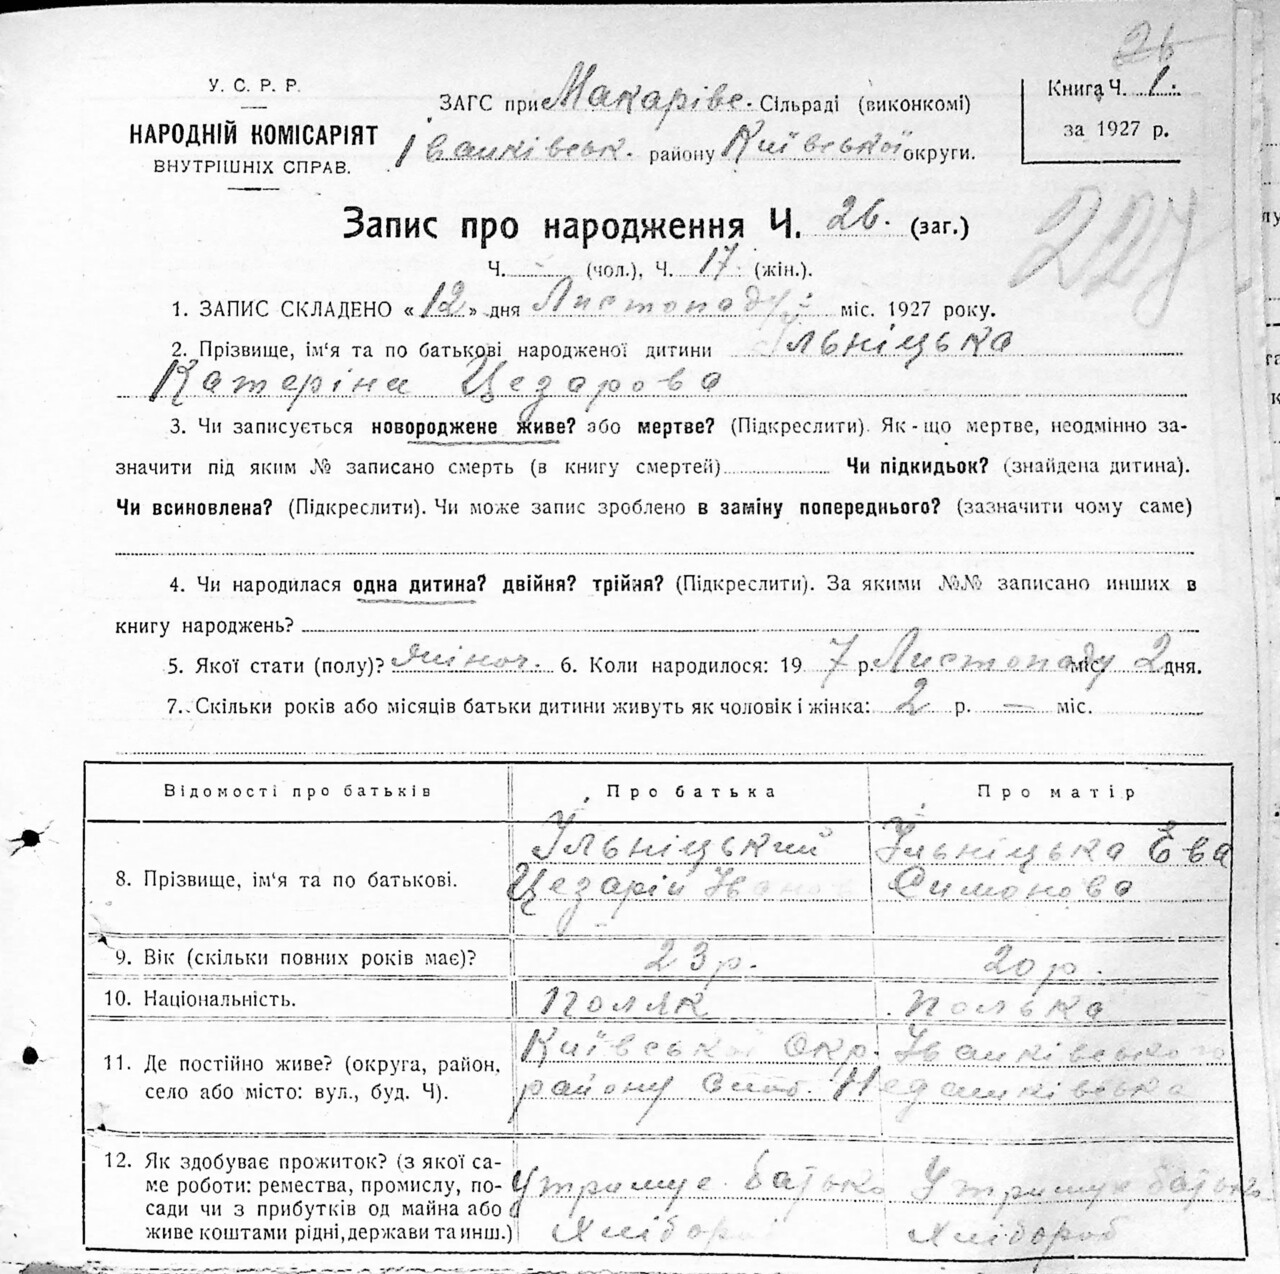 26
У. С. Р. Р.
НАРОДНІЙ КОМІСАРІЯТ
ВНУТРІШНІХ СПРАВ.
ЗАГС при Макаріве. Сільраді (виконкомі)
Іванківськ. району Київської округи.
Книга Ч. 1.
за 1927 р.
Запис про народження Ч. 26. (заг.)
Ч. - (чол.), Ч. 17 (жін.).
1. ЗАПИС СКЛАДЕНО «12» дня Листопаду міс. 1927 року.
2. Прізвище, ім'я та по батькові народженої дитини Ільніцька
Катеріна Цезарова
3. Чи записується новороджене живе? або мертве? (Підкреслити). Як-що мертве, неодмінно за-
значити під яким № записано смерть (в книгу смертей) Чи підкидьок? (знайдена дитина).
Чи всиновлена? (Підкреслити). Чи може запис зроблено в заміну попереднього? (зазначити чому саме)
4. Чи народилася одна дитина? двійня? трійня? (Підкреслити). За якими №№ записано инших в
книгу народжень?
5. Якої стати (полу)? жіноч. 6. Коли народилося: 19 7 р. Листопаду міс. 2 дня.
7. Скільки років або місяців батьки дитини живуть як чоловік і жінка: 2 р. — міс.
Відомості про батьків Про батька Про матір
8. Прізвище, ім'я та по батькові.
Ільніцький Ільніцька Ева
Цезарій Іванов Симонова
9. Вік (скільки повних років має)? 23 р. 20 р.
10. Національність. Поляк полька
11. Де постійно живе? (округа, район,
село або місто: вул., буд. Ч).
Київської Окр. Іванківського
району
12. Як здобуває прожиток? (з якої са-
ме роботи: ремества, промислу, по-
сади чи з прибутків од майна або
живе коштами рідні, держави та инш.)
Утримує батько Утримує батько
Хлібороб Хлібороб